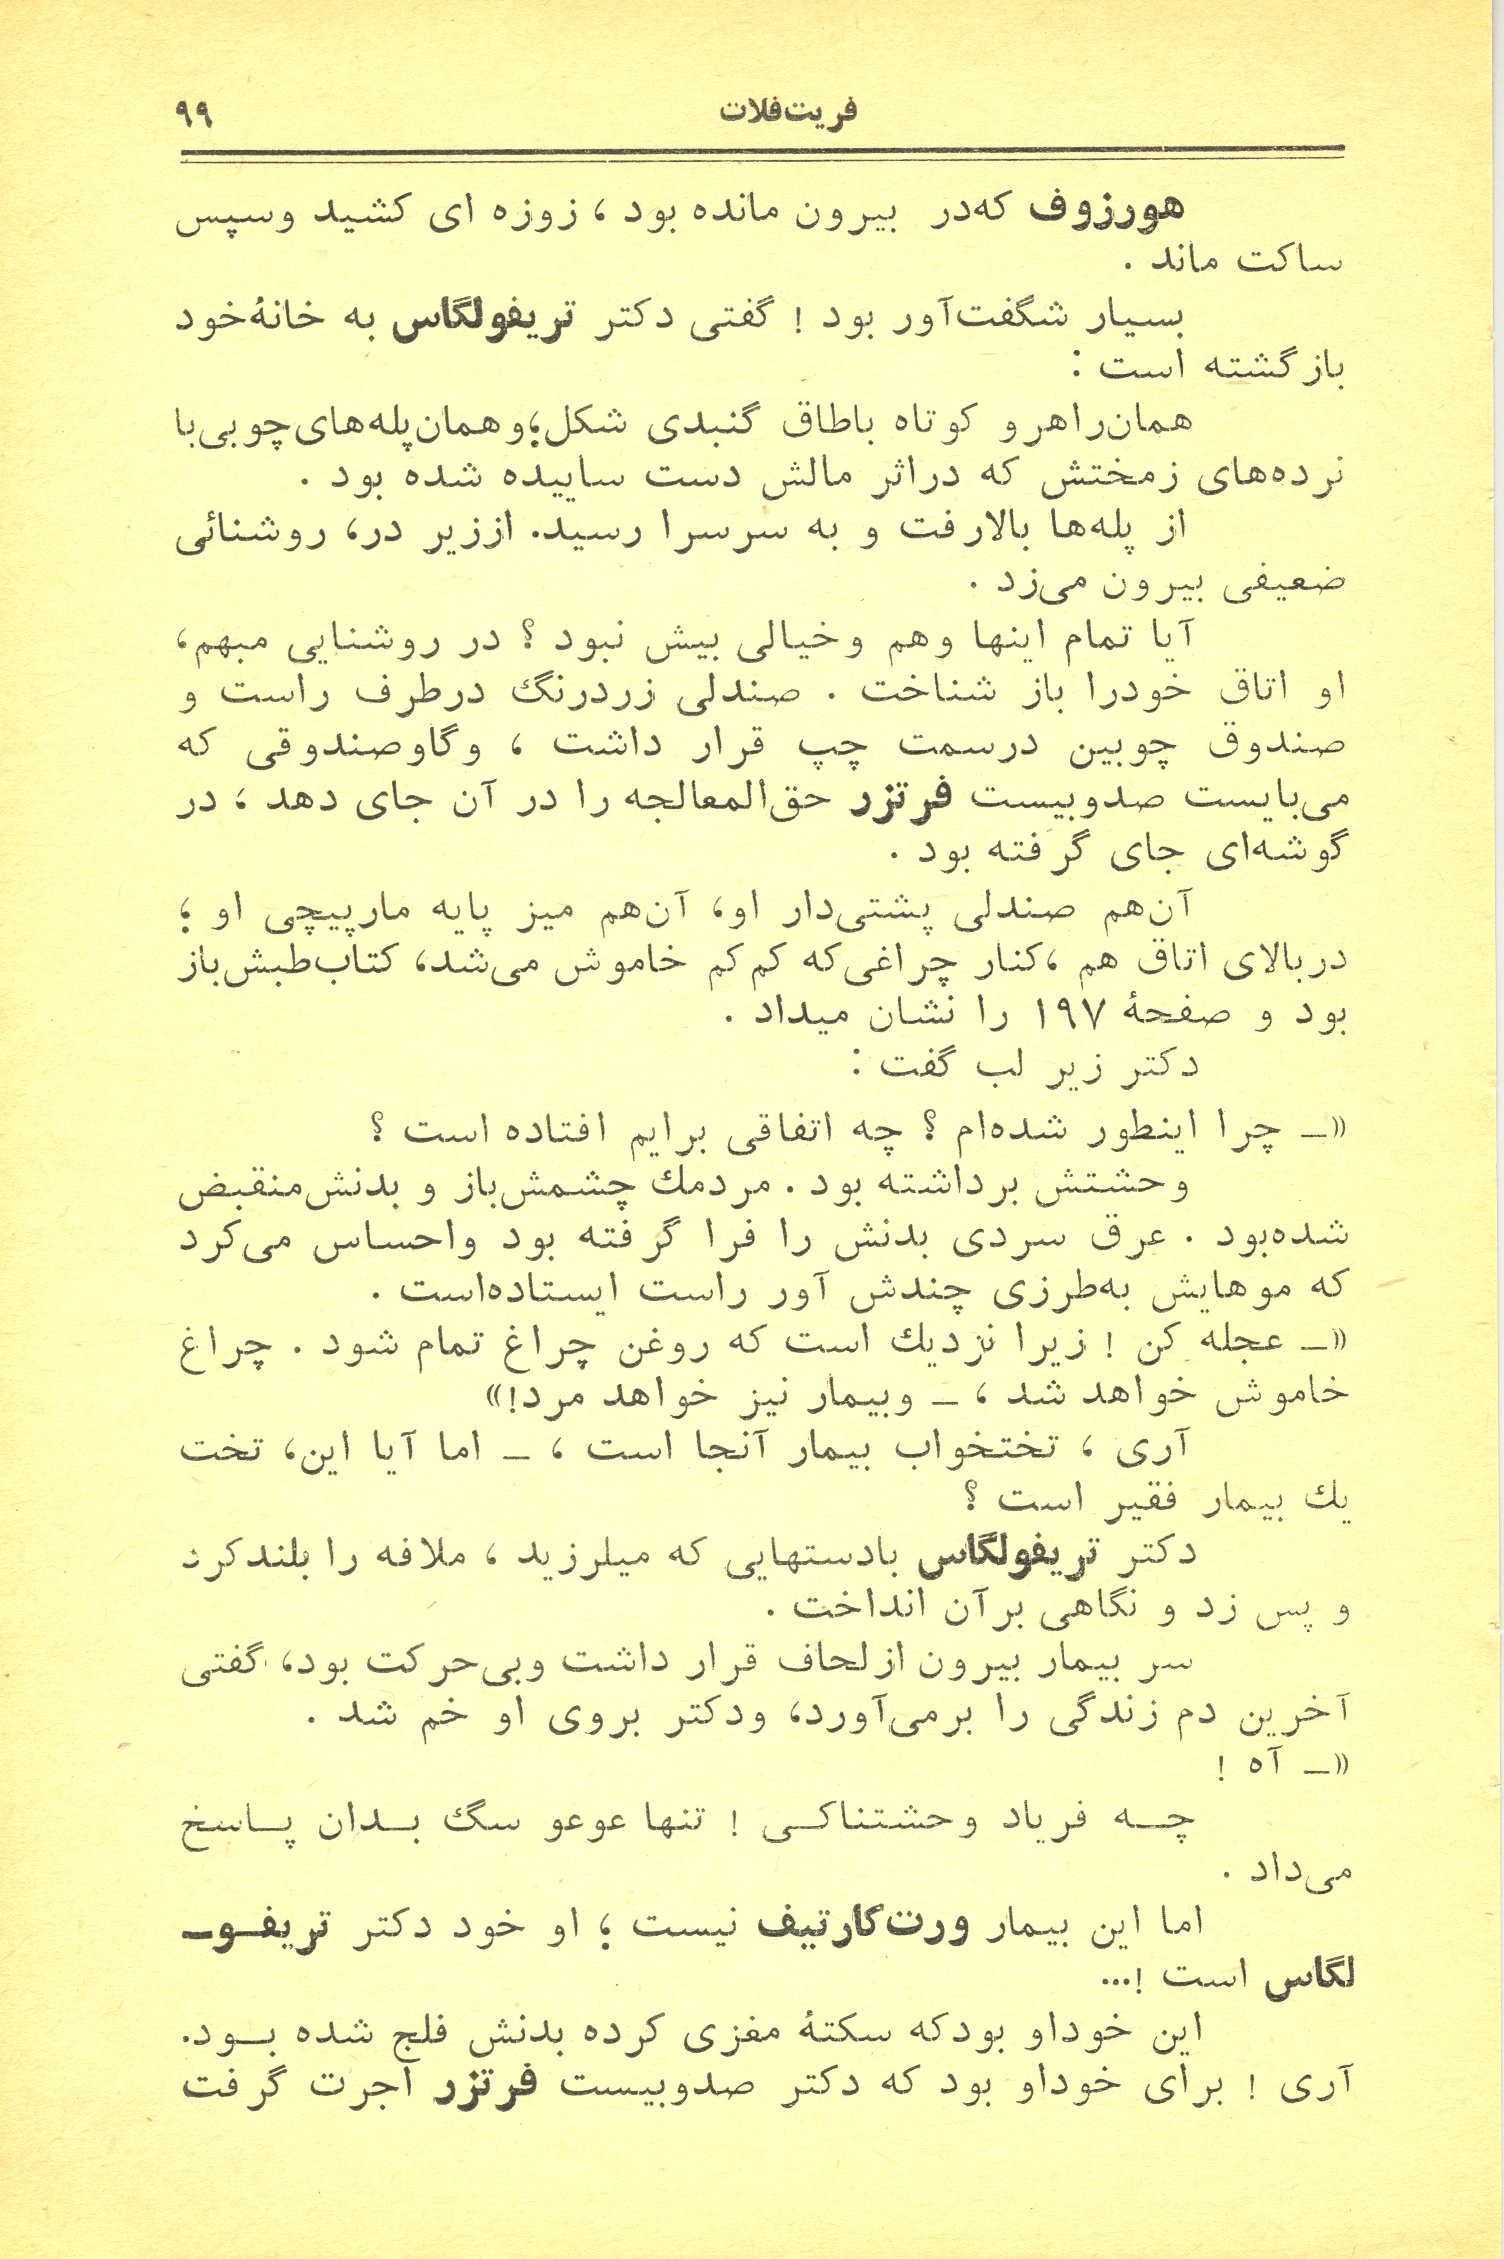 فریت‌فلات
۹۹
هورزوف که‌در بیرون مانده بود ، زوزه ای کشید وسپس
ساکت ماند .
بسیار شگفت‌آور بود ! گفتی دکتر تریفولگاس به خانهٔ‌خود
بازگشته است :
همان‌راهرو کوتاه باطاق گنبدی شکل؛وهمان‌پله‌های‌چوبی‌با
نرده‌های زمختش که دراثر مالش دست ساییده شده بود .
از پله‌ها بالارفت و به سرسرا رسید. اززیر در، روشنائی
ضعیفی بیرون می‌زد .
آیا تمام اینها وهم وخیالی بیش نبود ؟ در روشنایی مبهم،
او اتاق خودرا باز شناخت . صندلی زردرنگ درطرف راست و
صندوق چوبین درسمت چپ قرار داشت ، وگاوصندوقی که
می‌بایست صدوبیست فرتزر حق‌المعالجه را در آن جای دهد ، در
گوشه‌ای جای گرفته بود .
آن‌هم صندلی پشتی‌دار او، آن‌هم میز پایه مارپیچی او ؛
دربالای اتاق هم ،کنار چراغی‌که کم‌کم خاموش می‌شد، کتاب‌طبش‌باز
بود و صفحهٔ ۱۹۷ را نشان میداد .
دکتر زیر لب گفت :
«ـ چرا اینطور شده‌ام ؟ چه اتفاقی برایم افتاده است ؟
وحشتش برداشته بود . مردمك چشمش‌باز و بدنش‌منقبض
شده‌بود . عرق سردی بدنش را فرا گرفته بود واحساس می‌کرد
که موهایش به‌طرزی چندش آور راست ایستاده‌است .
«ـ عجله کن ! زیرا نزدیك است که روغن چراغ تمام شود . چراغ
خاموش خواهد شد ، ـ وبیمار نیز خواهد مرد!»
آری ، تختخواب بیمار آنجا است ، ـ اما آیا این، تخت
یك بیمار فقیر است ؟
دکتر تریفولگاس بادستهایی که میلرزید ، ملافه را بلندکرد
و پس زد و نگاهی برآن انداخت .
سر بیمار بیرون ازلحاف قرار داشت وبی‌حرکت بود، گفتی
آخرین دم زندگی را برمی‌آورد، ودکتر بروی او خم شد .
«ـ آه !
چـه فریاد وحشتناکـی ! تنها عوعو سگ بـدان پـاسخ
می‌داد .
اما این بیمار ورت‌کارتیف نیست ؛ او خود دکتر تریفـوـ
لگاس است !...
این خوداو بودکه سکتهٔ مغزی کرده بدنش فلج شده بـود.
آری ! برای خوداو بود که دکتر صدوبیست فرتزر اجرت گرفت